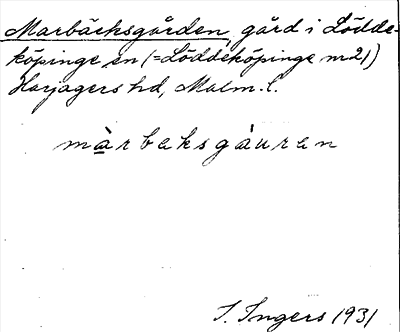 Marbäcksgården, gård i Lödde-
köpinge sn (=Löddeköpinge nr 21)
Harjagers hd, Malm. l.
màrbaksgàuran
I. Ingers 1931